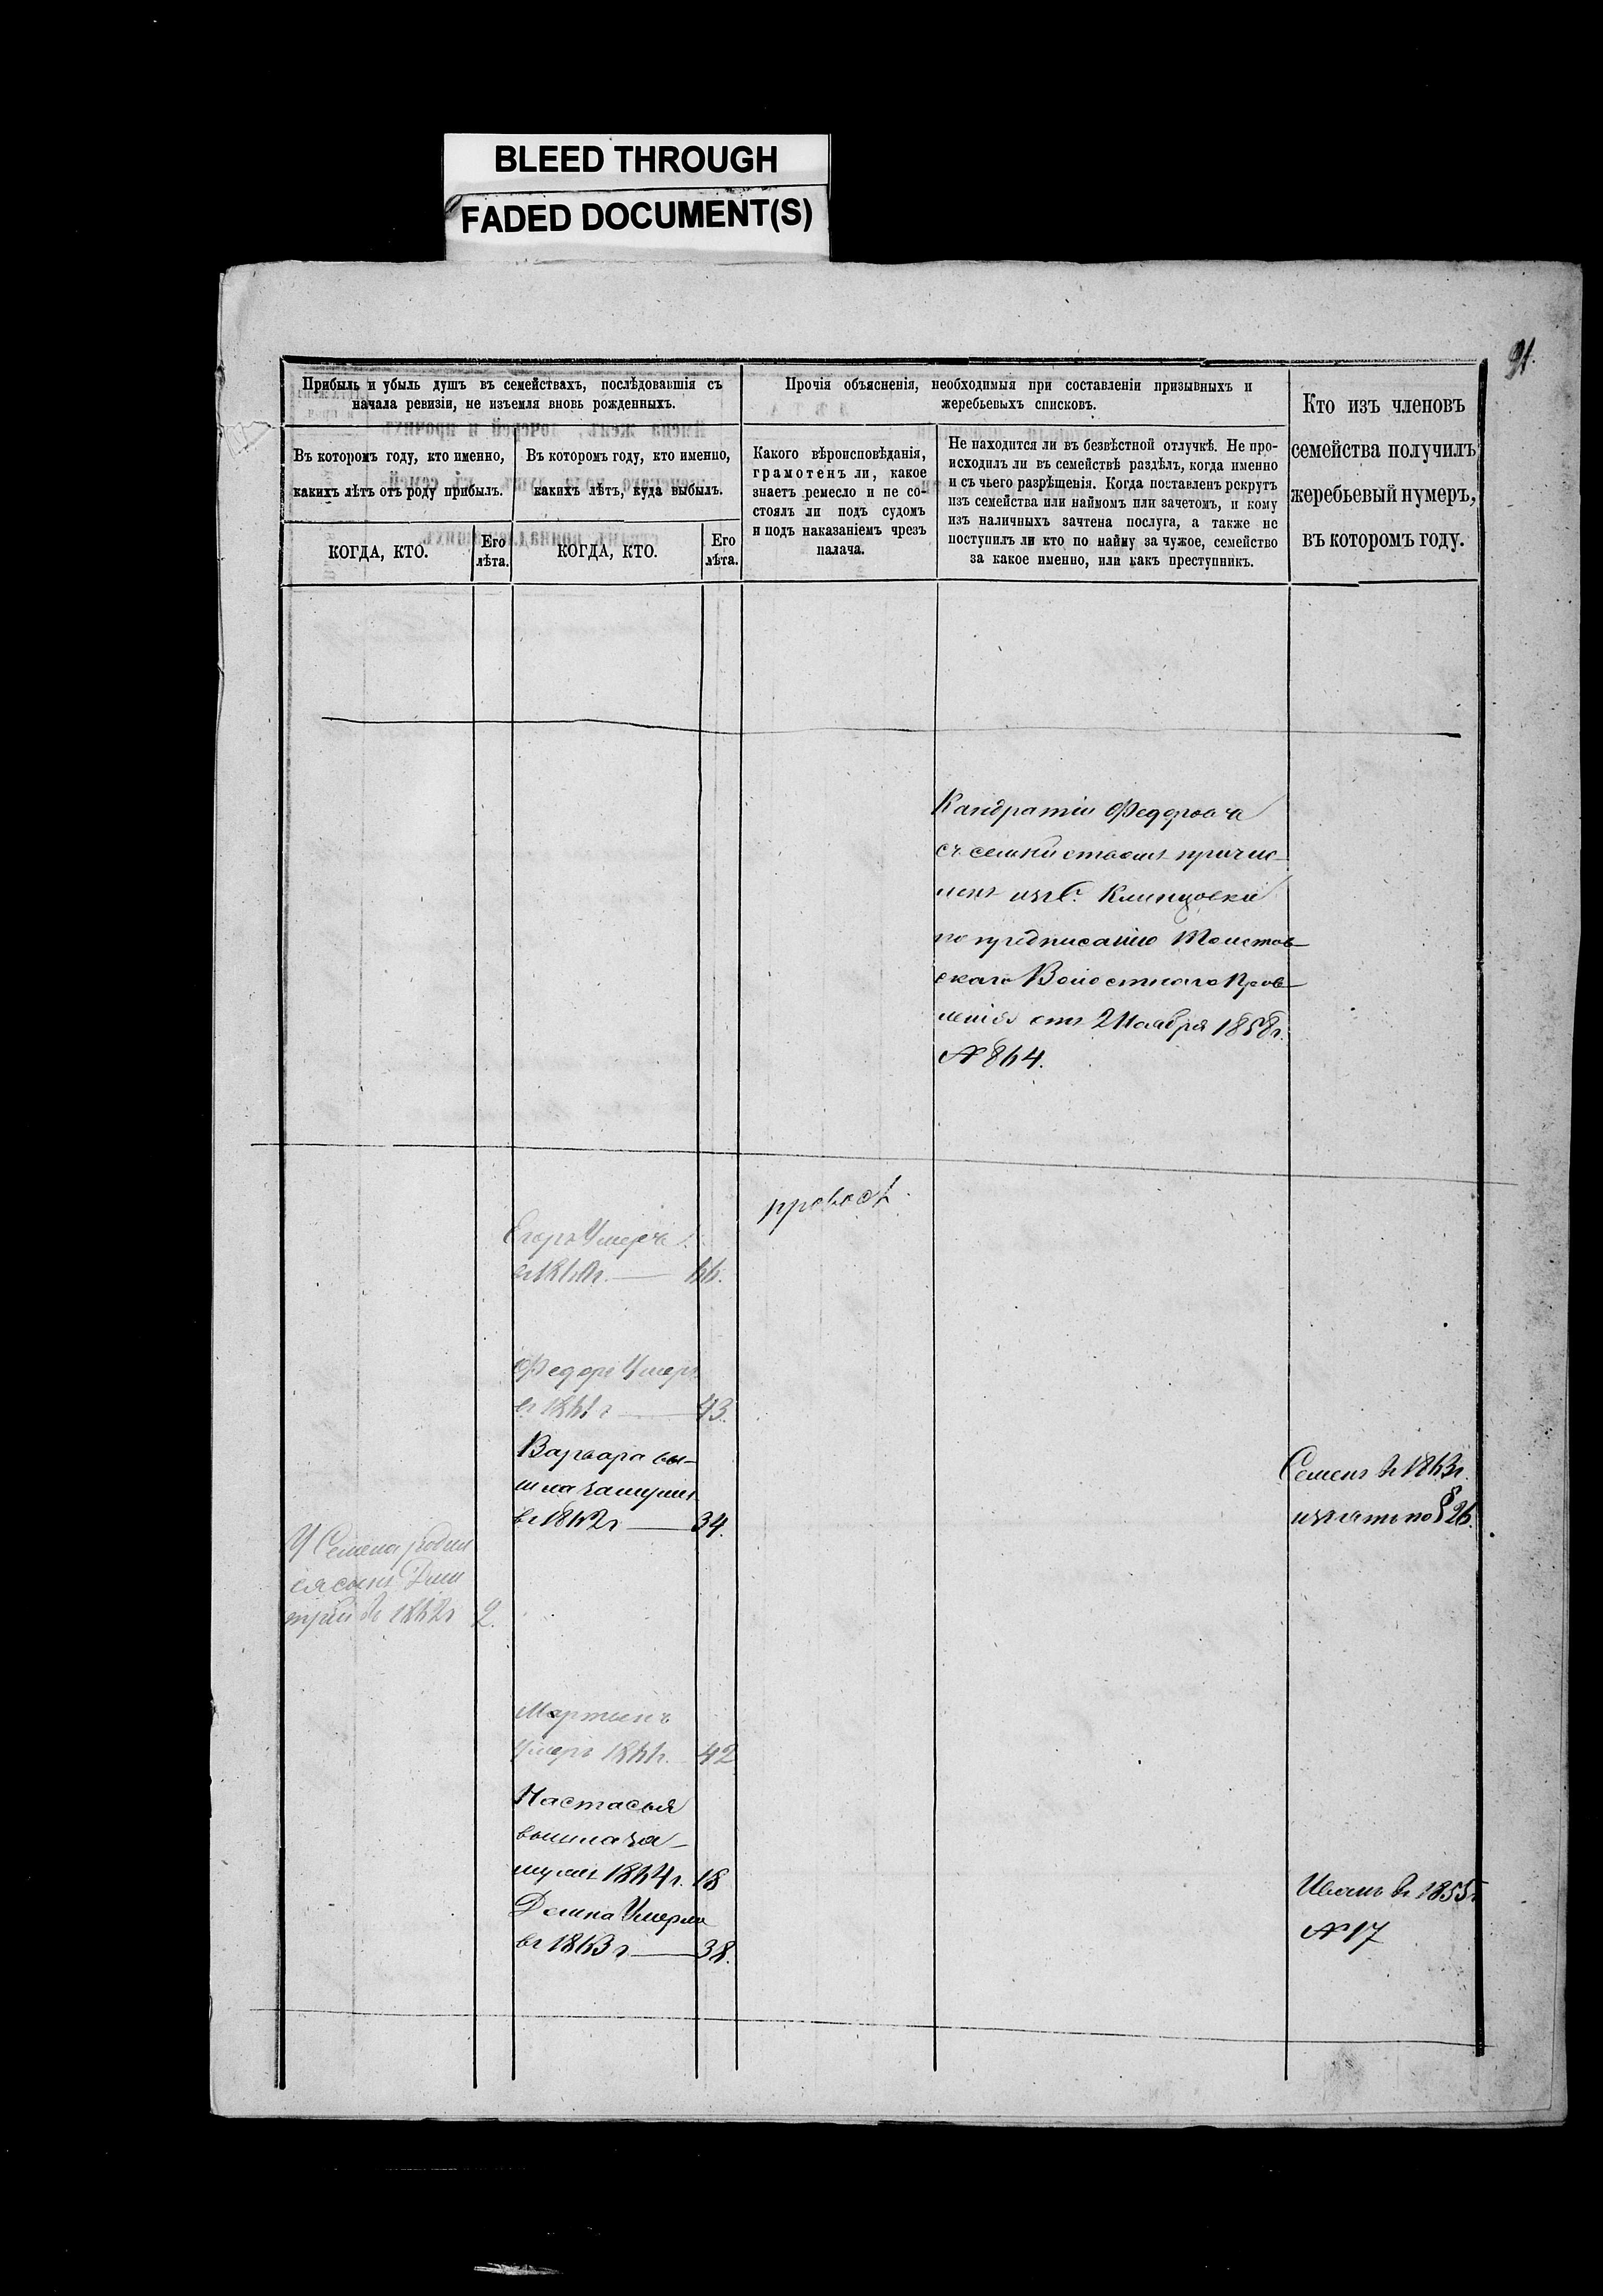 BLEED THROUGH
FADED DOCUMENT(S)
91.
Прибыль и убыль душъ въ семействахъ, послѣдовавшія съ
начала ревизіи, не изъемля вновь рожденныхъ.
Въ которомъ году, кто именно,
какихъ лѣтъ отъ роду прибылъ.
Въ которомъ году, кто именно,
какихъ лѣтъ, куда выбылъ.
КОГДА, КТО.
Его
лѣта.
КОГДА, КТО.
Его
лѣта.
Прочія объясненія, необходимыя при составленіи призывныхъ и
жеребьевыхъ списковъ.
Какого вѣроисповѣданія,
грамотенъ ли, какое
знаетъ ремесло и не со-
стоялъ ли подъ судомъ
и подъ наказаніемъ чрезъ
палача.
Не находится ли въ безвѣстной отлучкѣ. Не про-
исходилъ ли въ семействѣ раздѣлъ, когда именно
и съ чьего разрѣшенія. Когда поставленъ рекрутъ
изъ семейства или наймомъ или зачетомъ, и кому
изъ наличныхъ зачтена послуга, а также не
поступилъ ли кто по найму за чужое, семейство
за какое именно, или какъ преступникъ.
Кто изъ членовъ
семейства получилъ
жеребьевый нумеръ,
въ которомъ году.
Кандратіи Федорова
съ семействомъ причис-
ленъ изъ С. Клинцовки
по предписанію Толстов-
скаго Волостнаго Прав-
ленія отъ 2 Ноября 1858г.
№ 864.
правосл.
Егоръ Умеръ
66.
Федоръ Умеръ
въ 1861 г 43.
Варвара вы-
шла замужъ
въ 1862г 34.
Семенъ въ 1863г.
изъятъ по § 26.
У Семена родил
ся сынъ Дми
трій въ 1862г 2.
Мартынъ
Умеръ 1861г. 42
Настасья
вышла за-
мужъ 1864г. 18
Домна Умерла
въ 1863 г 38.
Иванъ въ 1855г
№ 17